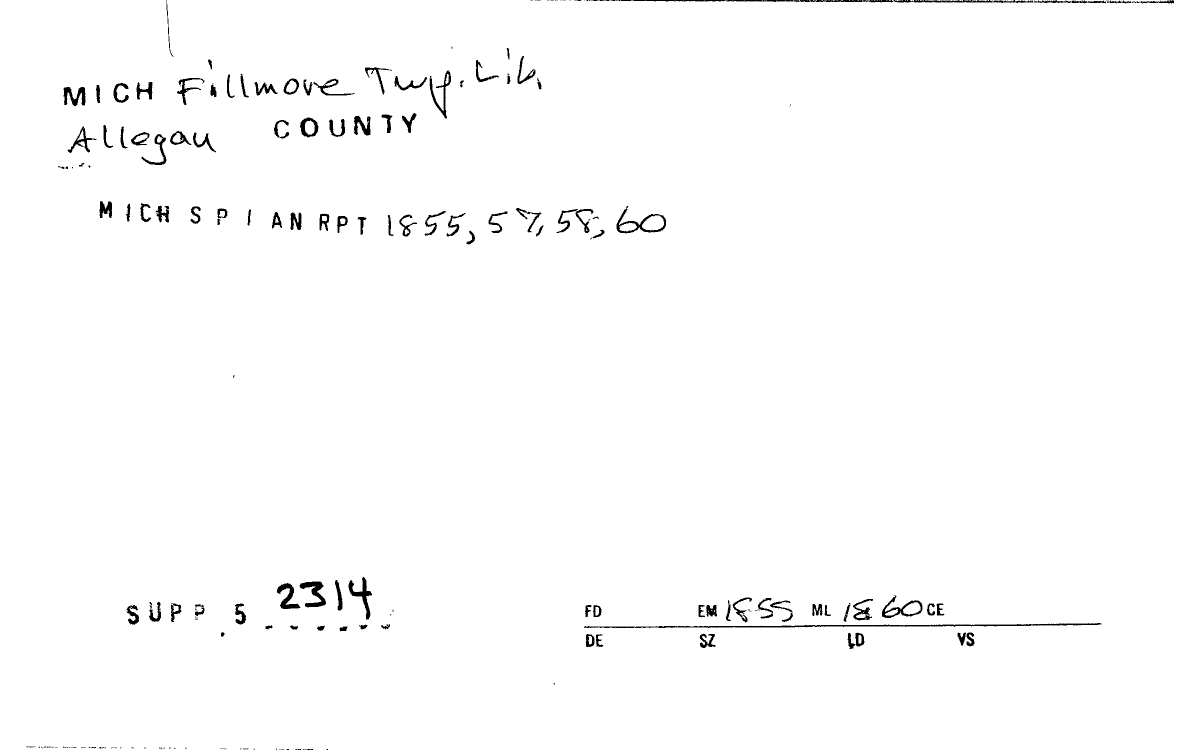 MICH Fillmore Twp. Lib.
Allegan COUNTY
MICH SPI AN RPT 1855, 57, 58, 60
SUPP. 5 2314
FD EM 1855 ML 1860 CE
DE SZ LD VS